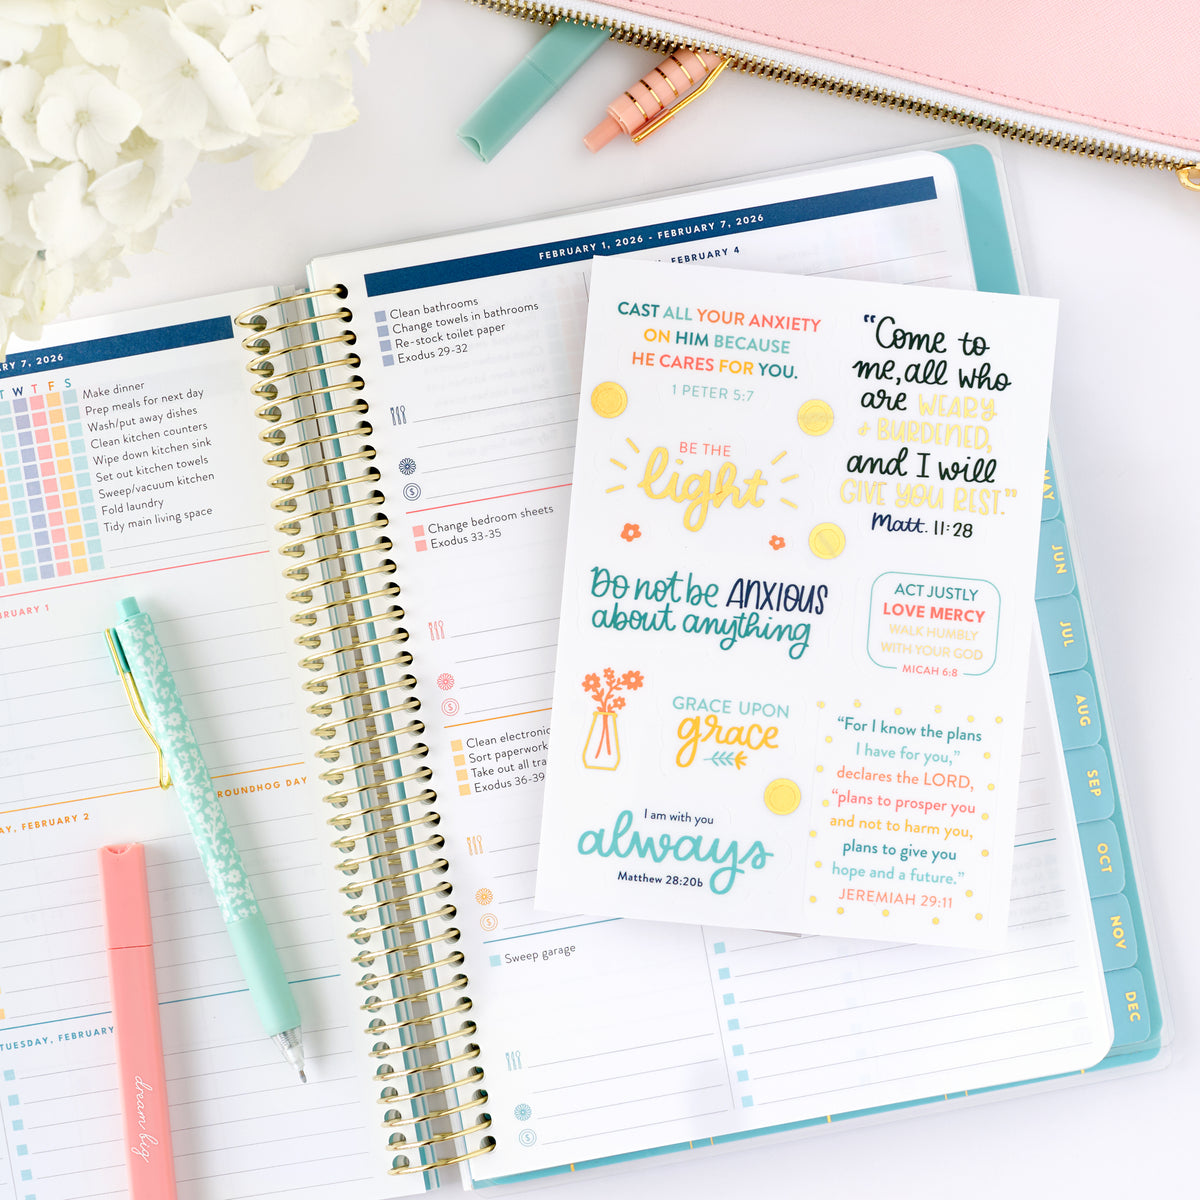 FEBRUARY 1, 2026 - FEBRUARY 7, 2026
FEBRUARY 4
Clean bathrooms
Change towels in bathrooms
Re-stock toilet paper
Exodus 29-32
Change bedroom sheets
Exodus 33-35
Clean electronic
Sort paperwork
Take out all tra
Exodus 36-39
Sweep garage
RY 7, 2026
T W T F S
Make dinner
Prep meals for next day
Wash/put away dishes
Clean kitchen counters
Wipe down kitchen sink
Set out kitchen towels
Sweep/vacuum kitchen
Fold laundry
Tidy main living space
BRUARY 1
ROUNDHOG DAY
AY, FEBRUARY 2
TUESDAY, FEBRUARY
dream big
CAST ALL YOUR ANXIETY
ON HIM BECAUSE
HE CARES FOR YOU.
1 PETER 5:7
“Come to
me, all who
are WEARY
& BURDENED,
and I will
GIVE YOU REST.”
Matt. 11:28
BE THE
light
Do not be ANXIOUS
about anything
ACT JUSTLY
LOVE MERCY
WALK HUMBLY
WITH YOUR GOD
MICAH 6:8
GRACE UPON
grace
“For I know the plans
I have for you,”
declares the LORD,
“plans to prosper you
and not to harm you,
plans to give you
hope and a future.”
JEREMIAH 29:11
I am with you
always
Matthew 28:20b
MAY
JUN
JUL
AUG
SEP
OCT
NOV
DEC